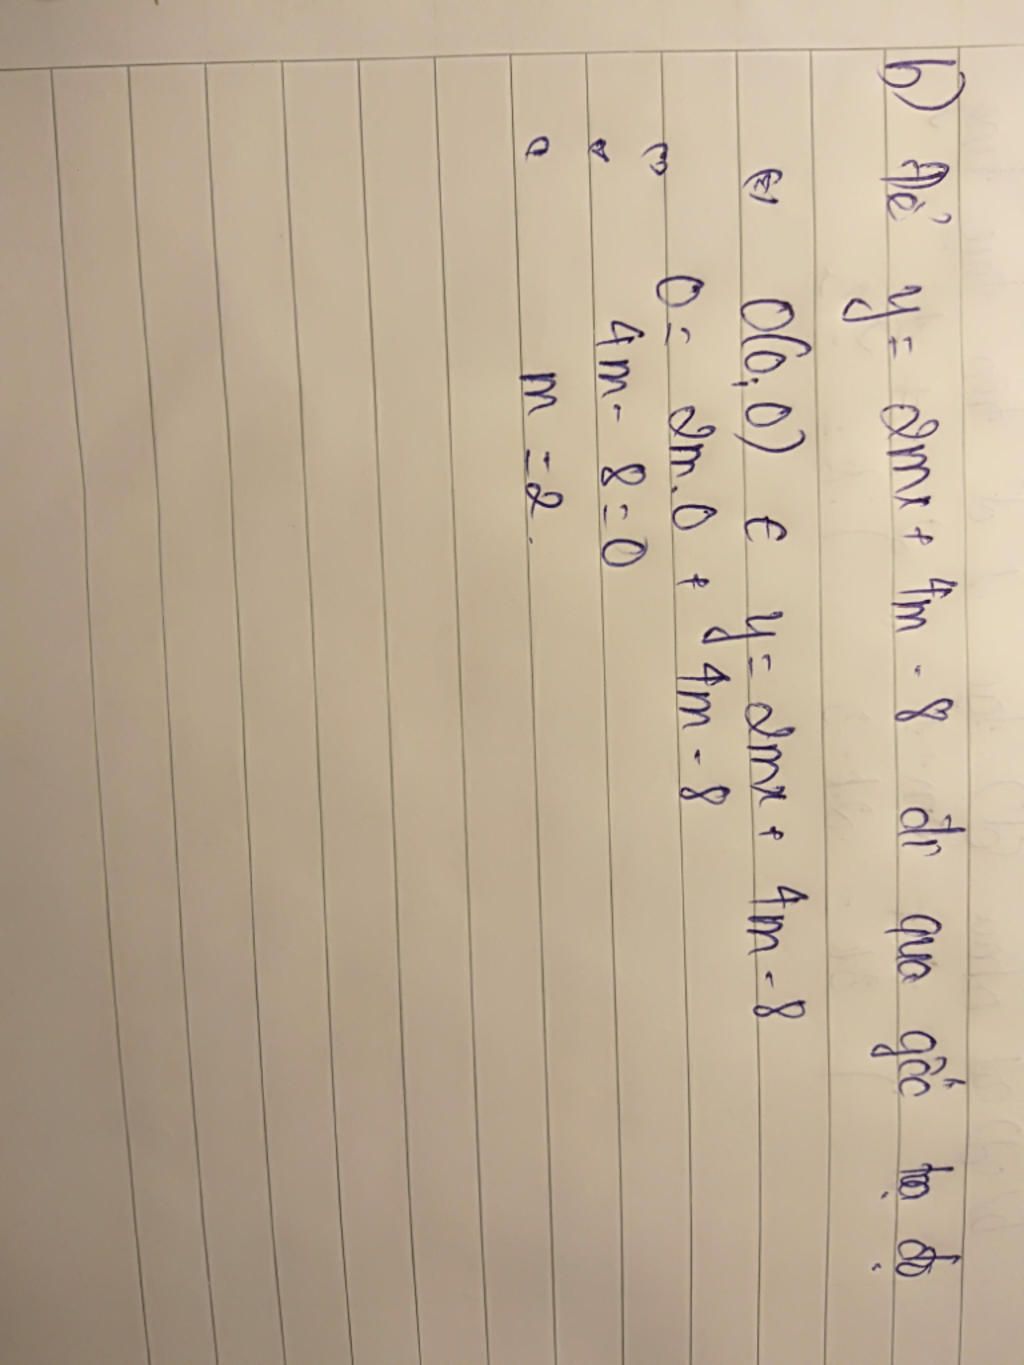 b) Để y = 2mx + 4m - 8 đi qua gốc tọa độ
O(0; 0) ∈ y = 2mx + 4m - 8
0 = 2m.0 + 4m - 8
4m - 8 = 0
m = 2.